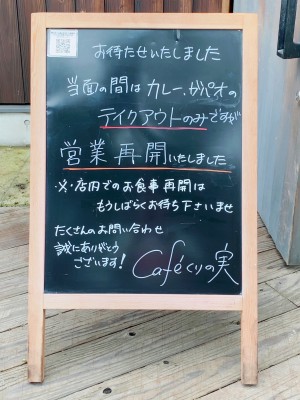 お待たせいたしました
当面の間は カレー、ガパオの
テイクアウトのみですが
営業 再開いたしました
※・店内でのお食事 再開は
もうしばらくお待ち下さいませ
たくさんのお問い合わせ
誠にありがとう
ございます!
Caféくりの実